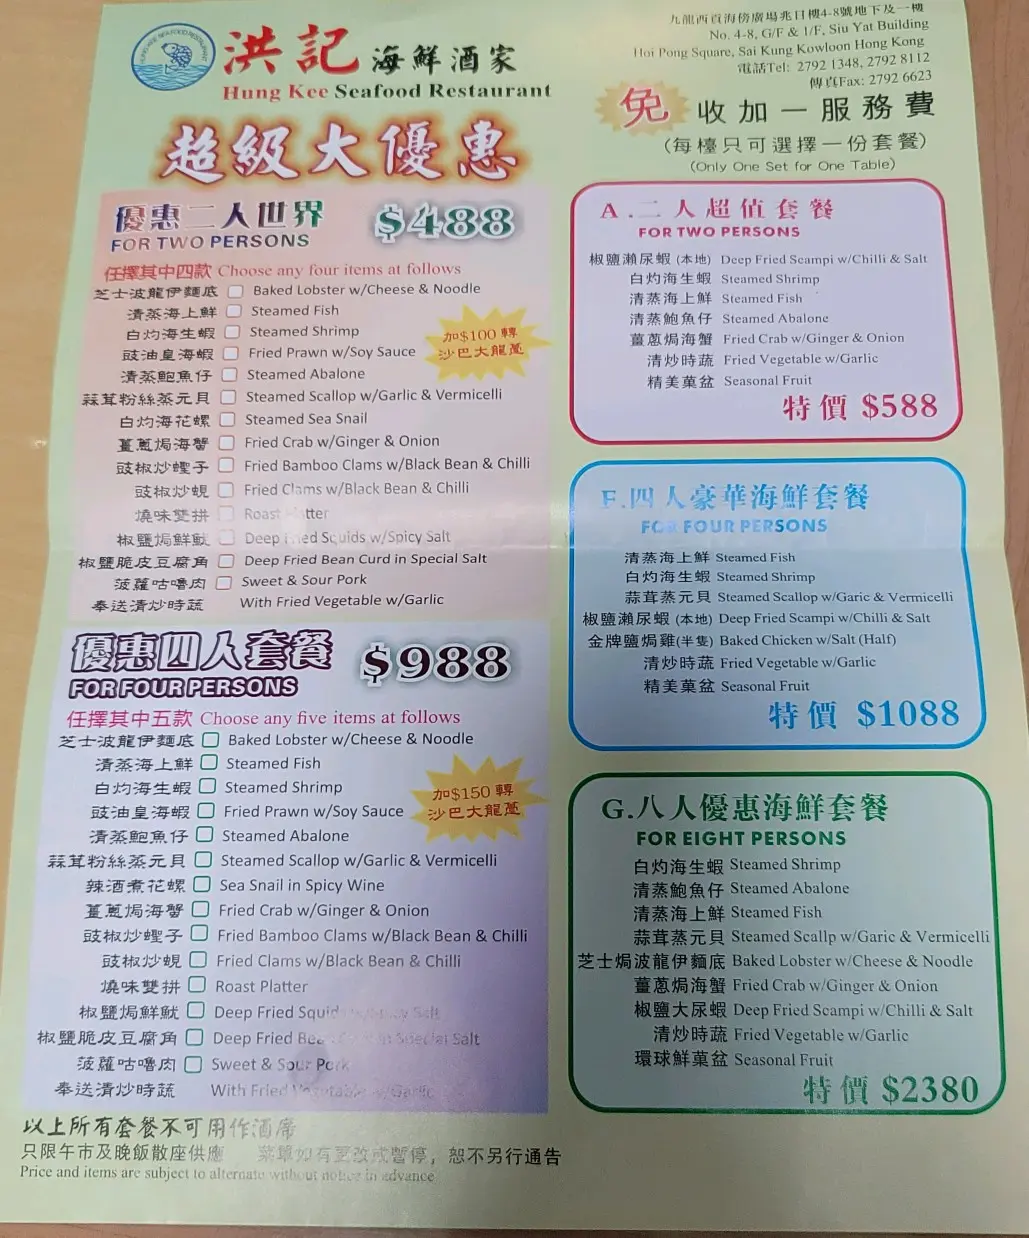 HUNG KEE SEAFOOD RESTAURANT
洪記海鮮酒家
Hung Kee Seafood Restaurant
九龍西貢海傍廣場兆日樓4-8號地下及一樓
No. 4-8, G/F & 1/F, Siu Yat Building
Hoi Pong Square, Sai Kung Kowloon Hong Kong
電話Tel: 2792 1348, 2792 8112
傳真Fax: 2792 6623
超級大優惠
免收加一服務費
(每檯只可選擇一份套餐)
(Only One Set for One Table)
優惠二人世界 $488
FOR TWO PERSONS
任擇其中四款 Choose any four items at follows
芝士波龍伊麵底 Baked Lobster w/Cheese & Noodle
清蒸海上鮮 Steamed Fish
白灼海生蝦 Steamed Shrimp
豉油皇海蝦 Fried Prawn w/Soy Sauce
清蒸鮑魚仔 Steamed Abalone
蒜茸粉絲蒸元貝 Steamed Scallop w/Garlic & Vermicelli
白灼海花螺 Steamed Sea Snail
薑蔥焗海蟹 Fried Crab w/Ginger & Onion
豉椒炒蟶子 Fried Bamboo Clams w/Black Bean & Chilli
豉椒炒蜆 Fried Clams w/Black Bean & Chilli
燒味雙拼 Roast Platter
椒鹽焗鮮魷 Deep Fried Squids w/Spicy Salt
椒鹽脆皮豆腐角 Deep Fried Bean Curd in Special Salt
菠蘿咕嚕肉 Sweet & Sour Pork
奉送清炒時蔬 With Fried Vegetable w/Garlic
加$100轉
沙巴大龍躉
優惠四人套餐 $988
FOR FOUR PERSONS
任擇其中五款 Choose any five items at follows
芝士波龍伊麵底 Baked Lobster w/Cheese & Noodle
清蒸海上鮮 Steamed Fish
白灼海生蝦 Steamed Shrimp
豉油皇海蝦 Fried Prawn w/Soy Sauce
清蒸鮑魚仔 Steamed Abalone
蒜茸粉絲蒸元貝 Steamed Scallop w/Garlic & Vermicelli
辣酒煮花螺 Sea Snail in Spicy Wine
薑蔥焗海蟹 Fried Crab w/Ginger & Onion
豉椒炒蟶子 Fried Bamboo Clams w/Black Bean & Chilli
豉椒炒蜆 Fried Clams w/Black Bean & Chilli
燒味雙拼 Roast Platter
椒鹽焗鮮魷 Deep Fried Squids w/Spicy Salt
椒鹽脆皮豆腐角 Deep Fried Bean Curd in Special Salt
菠蘿咕嚕肉 Sweet & Sour Pork
奉送清炒時蔬 With Fried Vegetable w/Garlic
加$150轉
沙巴大龍躉
A.二人超值套餐
FOR TWO PERSONS
椒鹽瀨尿蝦(本地) Deep Fried Scampi w/Chilli & Salt
白灼海生蝦 Steamed Shrimp
清蒸海上鮮 Steamed Fish
清蒸鮑魚仔 Steamed Abalone
薑蔥焗海蟹 Fried Crab w/Ginger & Onion
清炒時蔬 Fried Vegetable w/Garlic
精美菓盆 Seasonal Fruit
特價 $588
F.四人豪華海鮮套餐
FOR FOUR PERSONS
清蒸海上鮮 Steamed Fish
白灼海生蝦 Steamed Shrimp
蒜茸蒸元貝 Steamed Scallop w/Garic & Vermicelli
椒鹽瀨尿蝦(本地) Deep Fried Scampi w/Chilli & Salt
金牌鹽焗雞(半隻) Baked Chicken w/Salt (Half)
清炒時蔬 Fried Vegetable w/Garlic
精美菓盆 Seasonal Fruit
特價 $1088
G.八人優惠海鮮套餐
FOR EIGHT PERSONS
白灼海生蝦 Steamed Shrimp
清蒸鮑魚仔 Steamed Abalone
清蒸海上鮮 Steamed Fish
蒜茸蒸元貝 Steamed Scallp w/Garic & Vermicelli
芝士焗波龍伊麵底 Baked Lobster w/Cheese & Noodle
薑蔥焗海蟹 Fried Crab w/Ginger & Onion
椒鹽大尿蝦 Deep Fried Scampi w/Chilli & Salt
清炒時蔬 Fried Vegetable w/Garlic
環球鮮菓盆 Seasonal Fruit
特價 $2380
以上所有套餐不可用作酒席
只限午市及晚飯散座供應 菜單如有更改或暫停，恕不另行通告
Price and items are subject to alternate without notice in advance